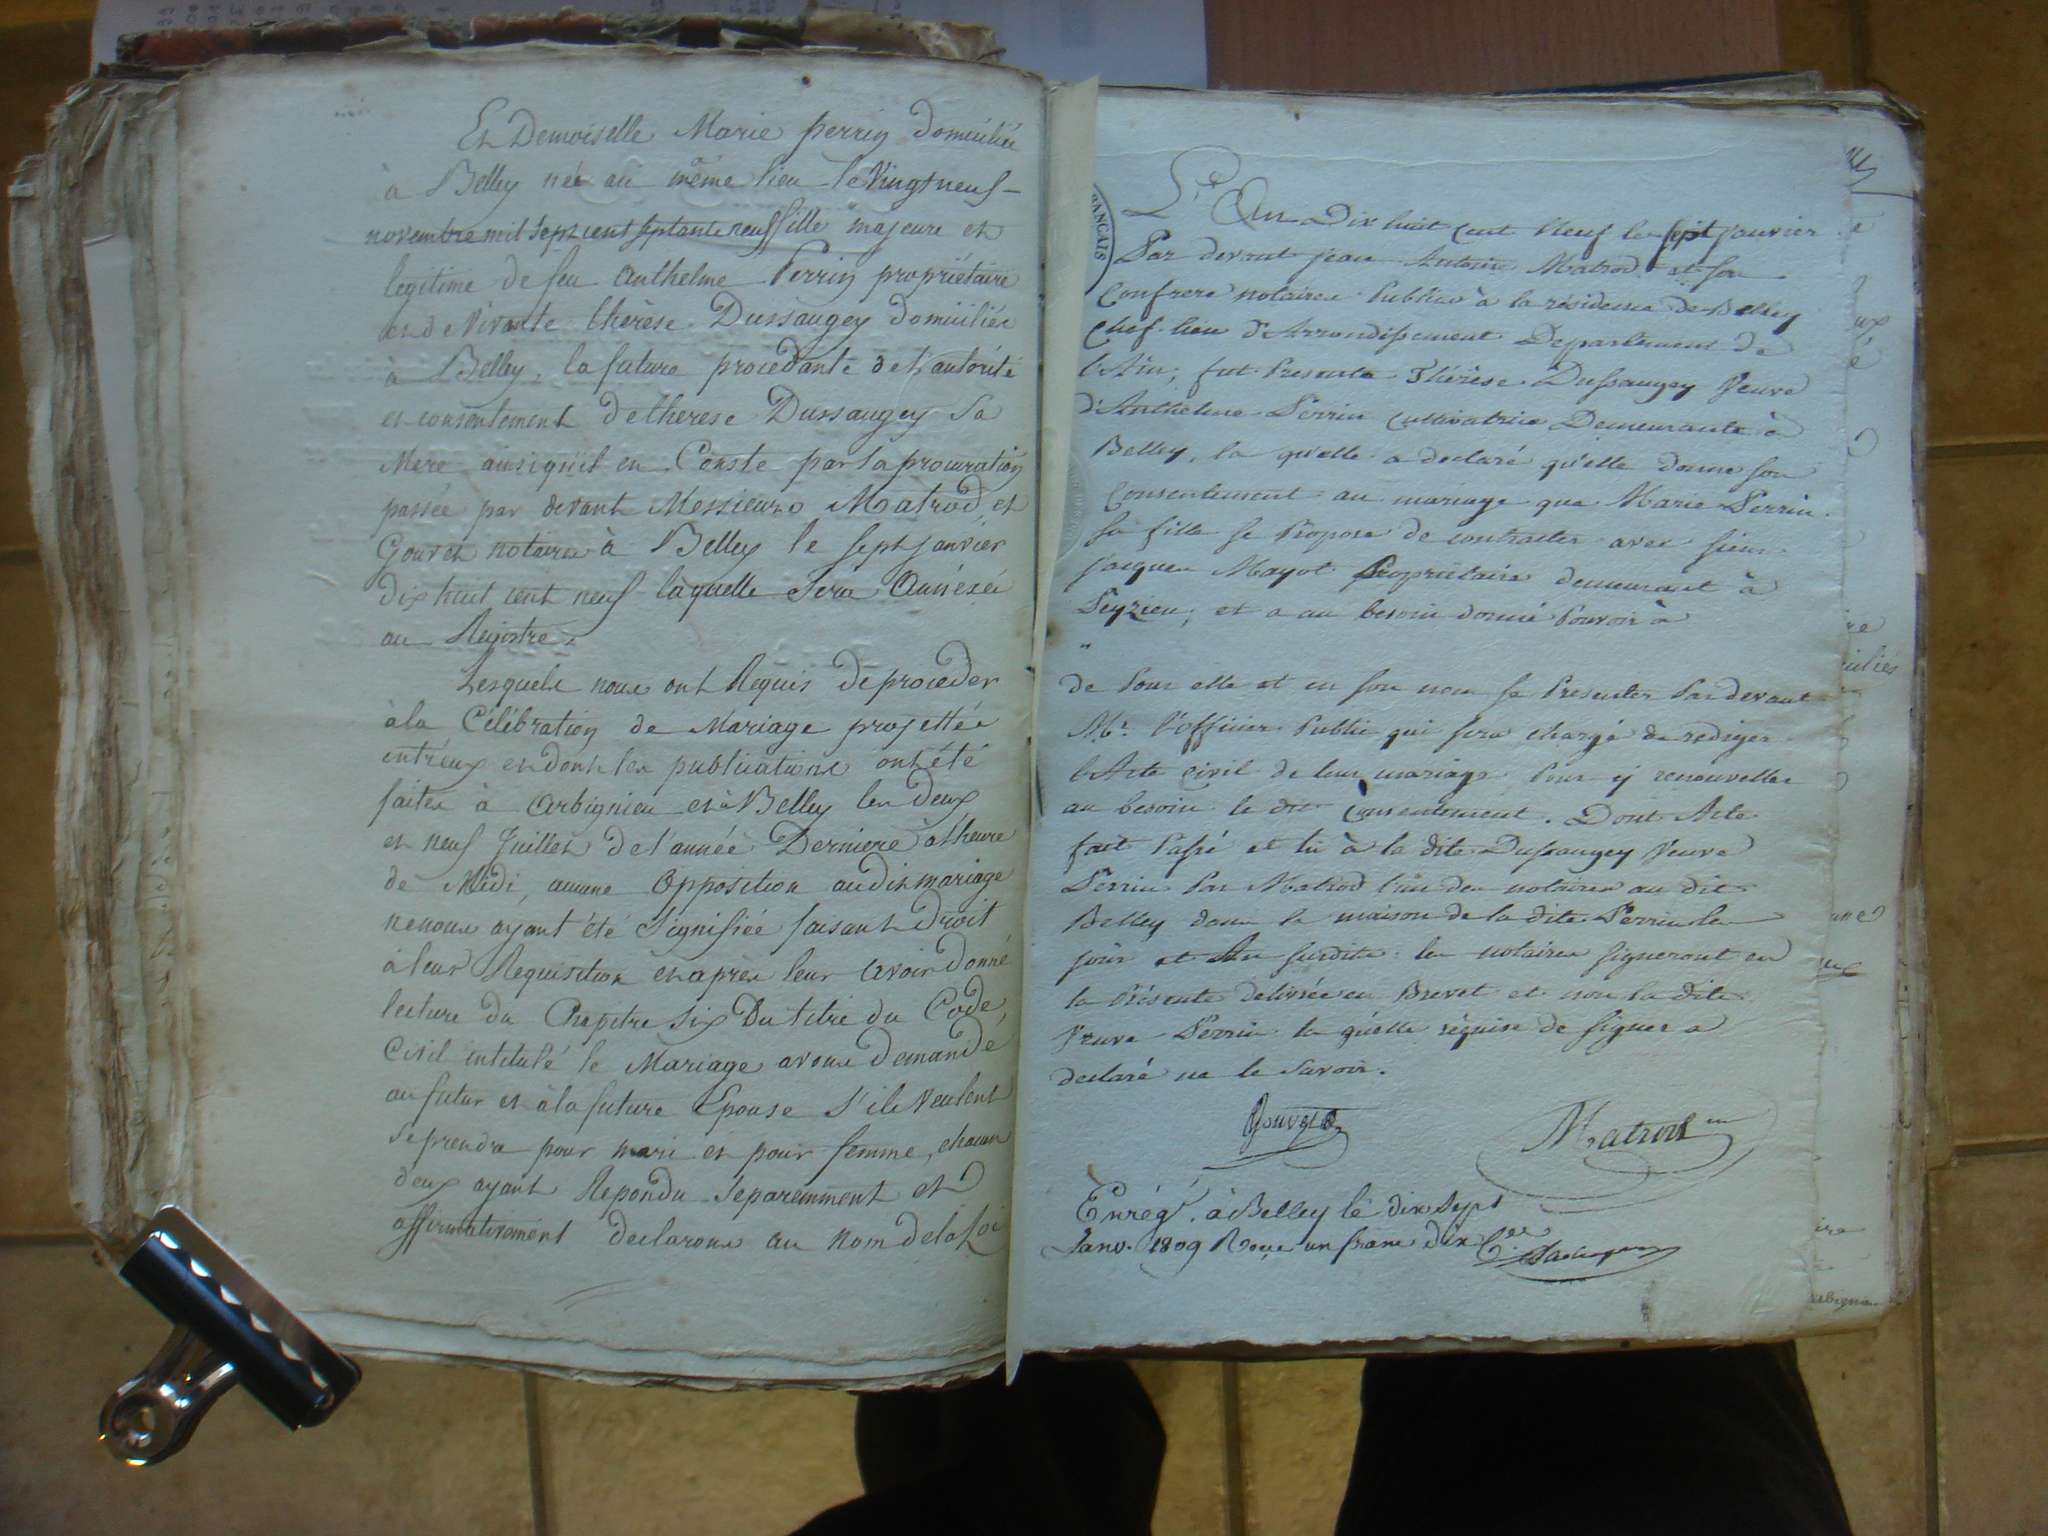 Et Demoiselle Marie perrin domiciliée
à Belley née au même lieu le Vingt neuf
novembre mil sept cent septante neuf fille majeure et
legitime de feu Anthelme Perrin propriétaire
et de Vivante thérèse Dussaugey domiciliée
à Belley, la future procedante de l'autorité
et consentement de therese Dussaugey Sa
Mere ainsi qu'il en Conste par Sa procuration
passée par devant Messieurs Matrod et
Gouvet notaires à Belley le sept janvier
dix huit cent neuf laquelle Sera Annéxée
au Registre.
Lesquels nous ont Requis de proceder
à la Célébration de Mariage projettée
entreux et dont les publications ont été
faites à Arbignieu et à Belley les deux
et neuf Juillet de l'année Derniere à l'heure
de Midi, aucune Opposition au dit mariage
ne nous ayant été Signifiée faisant Droit
à leur Requisition et après leur avoir Donné
lecture du Chapitre Six Du titre du Code
Civil intitulé le Mariage avons demandé
au futur et à la future Epouse S'ils Veulent
se prendre pour mari et pour femme, chacun
deux ayant Repondu Séparemment et
affirmativement declarons au nom de la Loi
ANÇAIS
L'An Dix huit Cent Neuf le sept janvier
Par devant jean Antoine Matrod et son
Confrere notaires Publics à la résidence de Belley
Chef lieu d'Arrondissement Departement de
l'Ain; fut Presente Thérèse Dussaugey Veuve
d'Anthelme Perrin cultivatrice Demeurante à
Belley, la qu'elle a declaré qu'elle donne son
Consentement au mariage que Marie Perrin
sa fille se Propose de contracter avec sieur
jacques Mayot Propriétaire demeurant à
Peyzieu; et a au besoin donné Pouvoir à
"
de Pour elle et en son nom se Presenter Par devant
Mr. l'officier Public qui sera chargé de rediger
l'Acte Civil de leur mariage Pour y renouveller
au besoin le dit Consentement. Dont Acte
fait Passé et lû à la dite Dussaugey Veuve
Perrin Par Matrod l'un des notaires au dit
Belley dans la maison de la dite Perrin les
jour et An susdits: les notaires signeront en
la Présente delivrée en Brevet et non la dite
Veuve Perrin la quelle réquise de signer a
declaré ne le savoir.
Gouvet Matrod
Enrég. à Belley le dix sept
Janv. 1809 Reçu un franc dix C.es